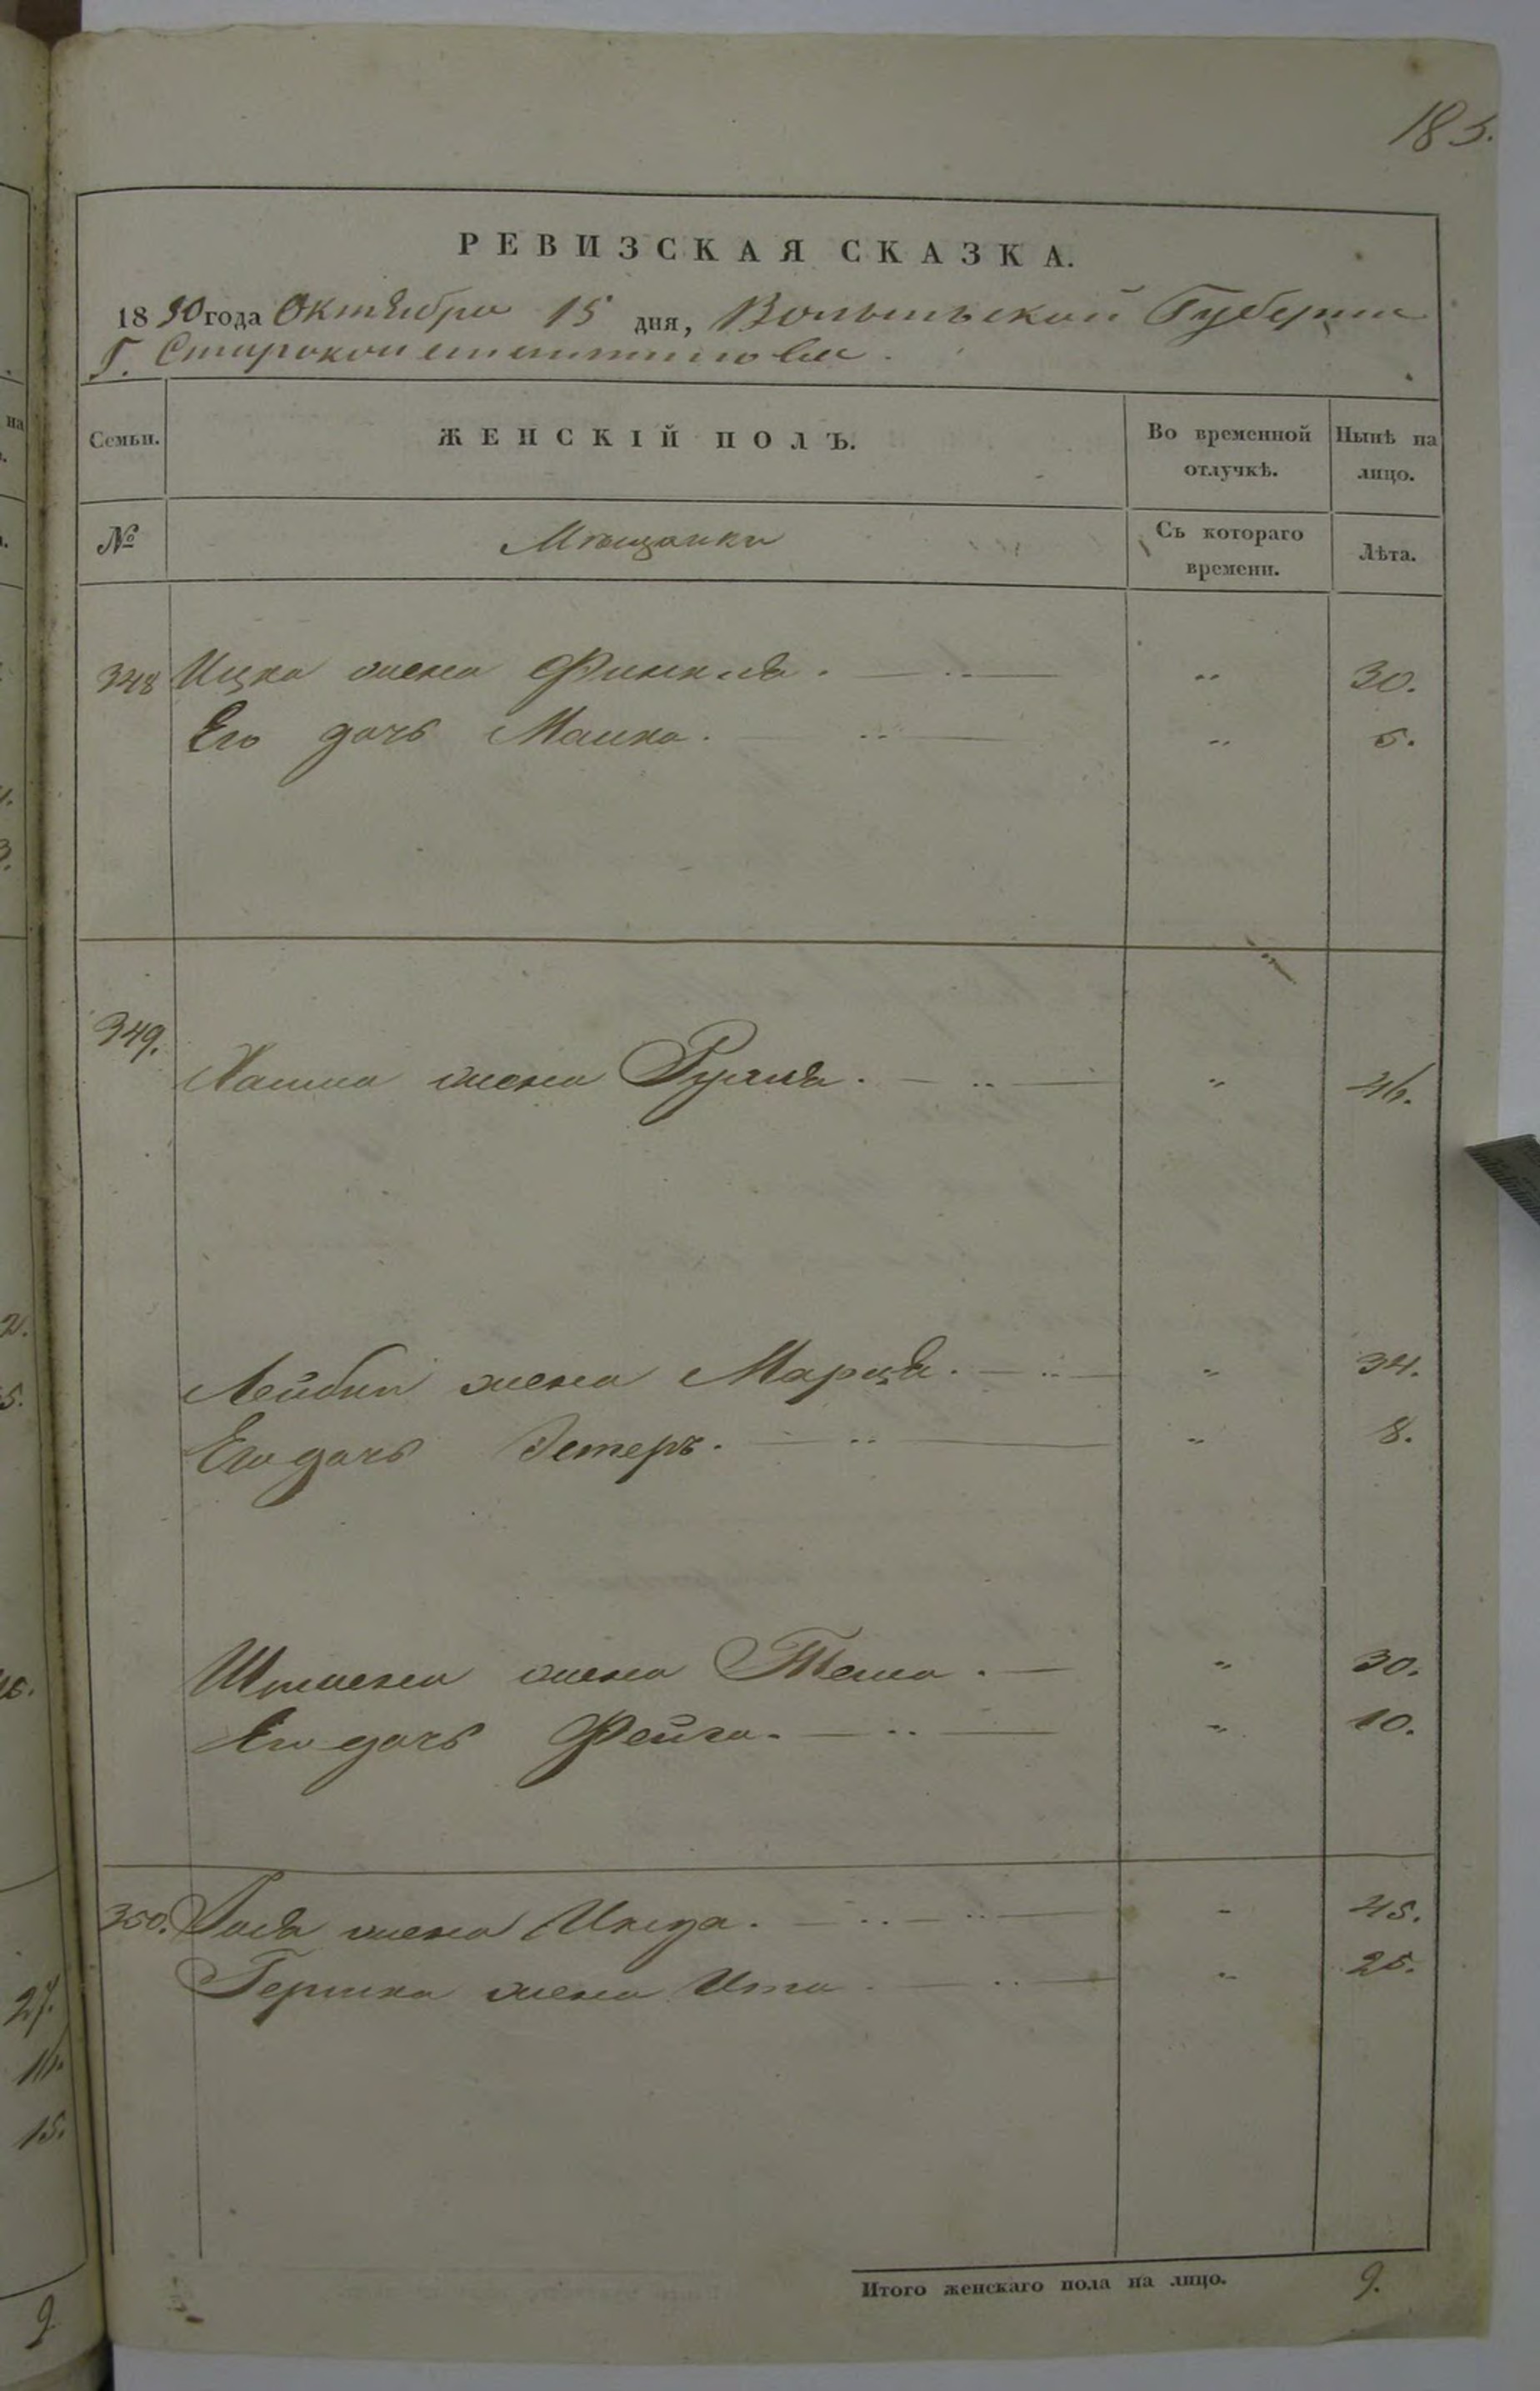 185.
РЕВИЗСКАЯ СКАЗКА.
1850 года Октября 15 дня, Волынской Губернии
Г. Староконстантинова.
Семьи. ЖЕНСКІЙ ПОЛЪ. Во временной отлучкѣ. Нынѣ на лицо.
№ Мѣщанки Съ котораго времени. Лѣта.
348 Ицка жена Финкля. — „ — „ 30.
Его дочь Машка. — „ — „ 5.
349.
жена Рухля. — „ — „ 46.
Лейбы жена Марія. — „ — „ 34.
Его дочь Эстеръ. — „ — „ 8.
жена Тема. — „ 30.
Его дочь Фейга. — „ — „ 10.
350. жена — „ — „ — - 45.
Гершка жена Ита. — „ — „ 25.
Итого женскаго пола на лицо. 9.
2.
5.
27.
16.
15.
9